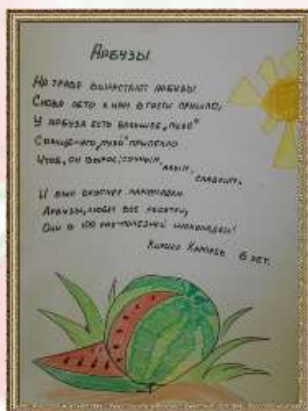 Арбузы
На траве вырастают арбузы
Снова лето к нам в гости пришло,
У арбуза есть большое „пузо"
Солнце-его „пузо" припекло
Чтоб, он вырос, сочным,
алым,
сладким.
И был
Арбузы, любят все ребята,
Они в 100 раз полезней шоколадки!
Кирилл 6 лет.